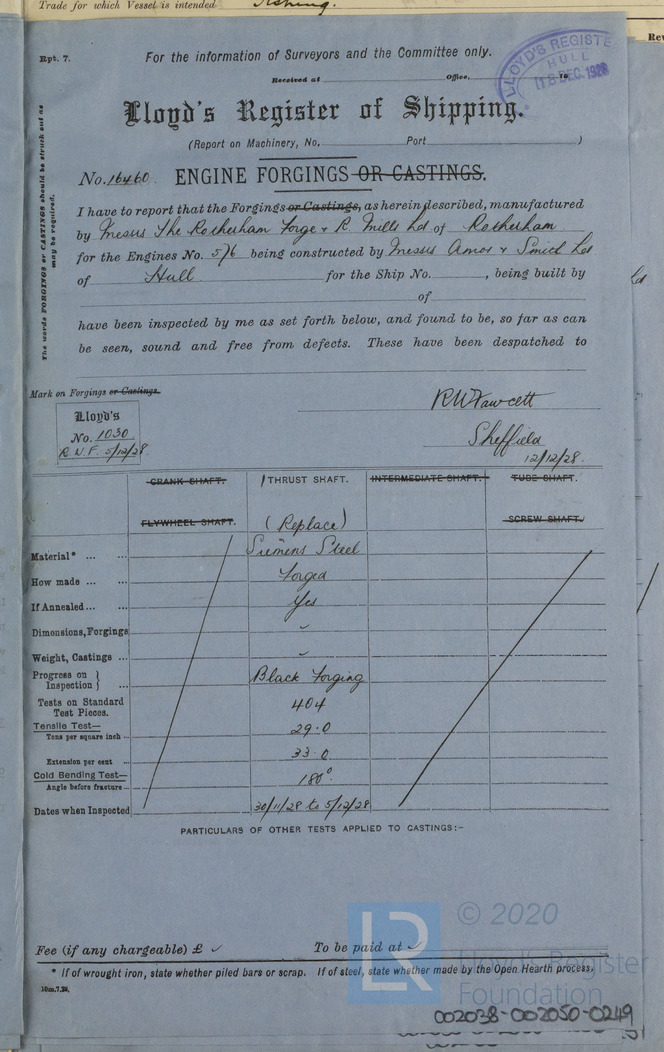 Trade for which Vessel is intended Fishing.
Rpt. 7.
For the information of Surveyors and the Committee only.
LLOYD'S REGISTER
HULL
18 DEC. 1928
Received at Office, 19
Lloyd's Register of Shipping.
(Report on Machinery, No. Port )
The words FORGINGS or CASTINGS should be struck out as
may be required.
No. 16460. ENGINE FORGINGS OR CASTINGS.
I have to report that the Forgings or Castings, as herein described, manufactured
by Messrs The Rotherham Forge & R. Mills Ltd of Rotherham
for the Engines No. 576 being constructed by Messrs Amos & Smith Ltd
of Hull for the Ship No. , being built by
of
have been inspected by me as set forth below, and found to be, so far as can
be seen, sound and free from defects. These have been despatched to
Mark on Forgings or Castings.
Lloyd's
No. 1030
R.W.F. 5/12/28.
RWFawcett
Sheffield
12/12/28.
CRANK SHAFT. 1 THRUST SHAFT. INTERMEDIATE SHAFT. TUBE SHAFT.
FLYWHEEL SHAFT. (Replace) SCREW SHAFT.
Material* ... ... Siemens Steel
How made ... ... Forged
If Annealed... ... Yes
Dimensions, Forgings ✓
Weight, Castings ... ✓
Progress on
Inspection } ... Black Forging
Tests on Standard
Test Pieces. 404
Tensile Test—
Tons per square inch ... 29.0
Extension per cent ... 33.0
Cold Bending Test—
Angle before fracture ... 180°.
Dates when Inspected 30/11/28 to 5/12/28
PARTICULARS OF OTHER TESTS APPLIED TO CASTINGS:—
Fee (if any chargeable) £ ✓ To be paid at ✓
* If of wrought iron, state whether piled bars or scrap. If of steel, state whether made by the Open Hearth process.
10m.7.28.
LR
© 2020
Lloyd's Register
Foundation
002038-002050-0249